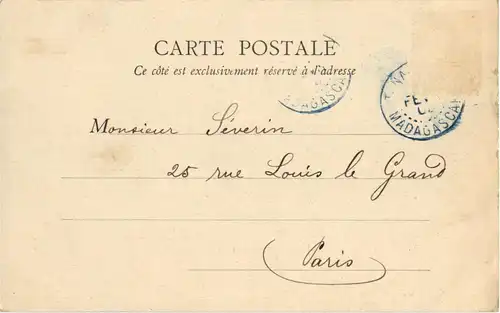 CARTE POSTALE
Ce côté est exclusivement réservé à l'adresse
MADAGASCAR
MADAGASCAR
Monsieur Séverin
25 rue Louis le Grand
Paris